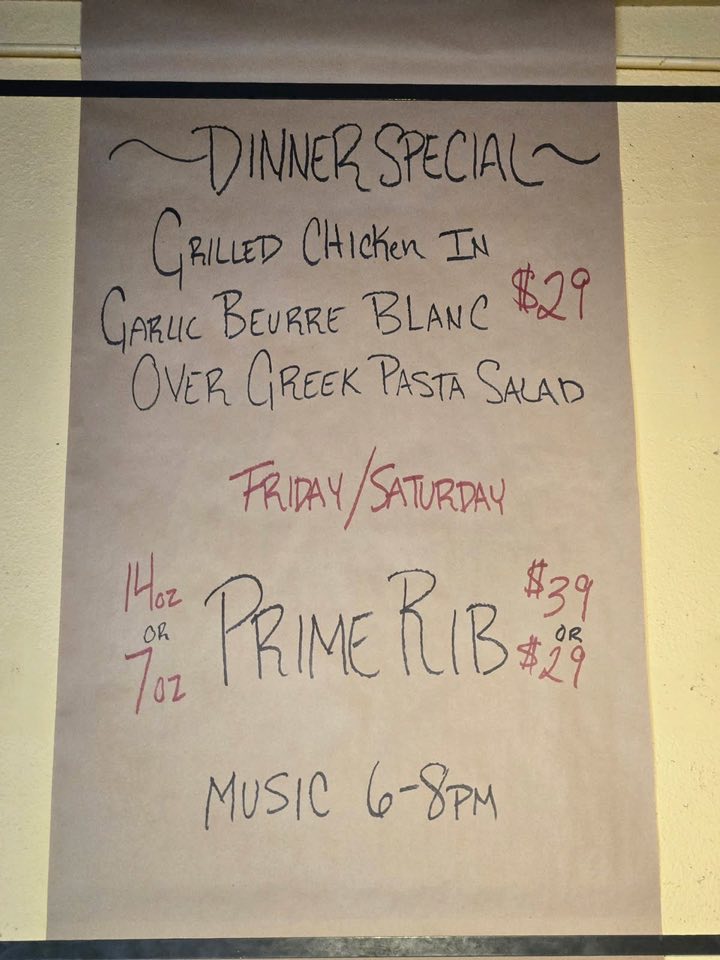 ~DINNER SPECIAL~
GRILLED CHICKEN IN
GARLIC BEURRE BLANC $29
OVER GREEK PASTA SALAD
FRIDAY/SATURDAY
14oz OR 7oz PRIME RIB $39 OR $29
MUSIC 6-8PM